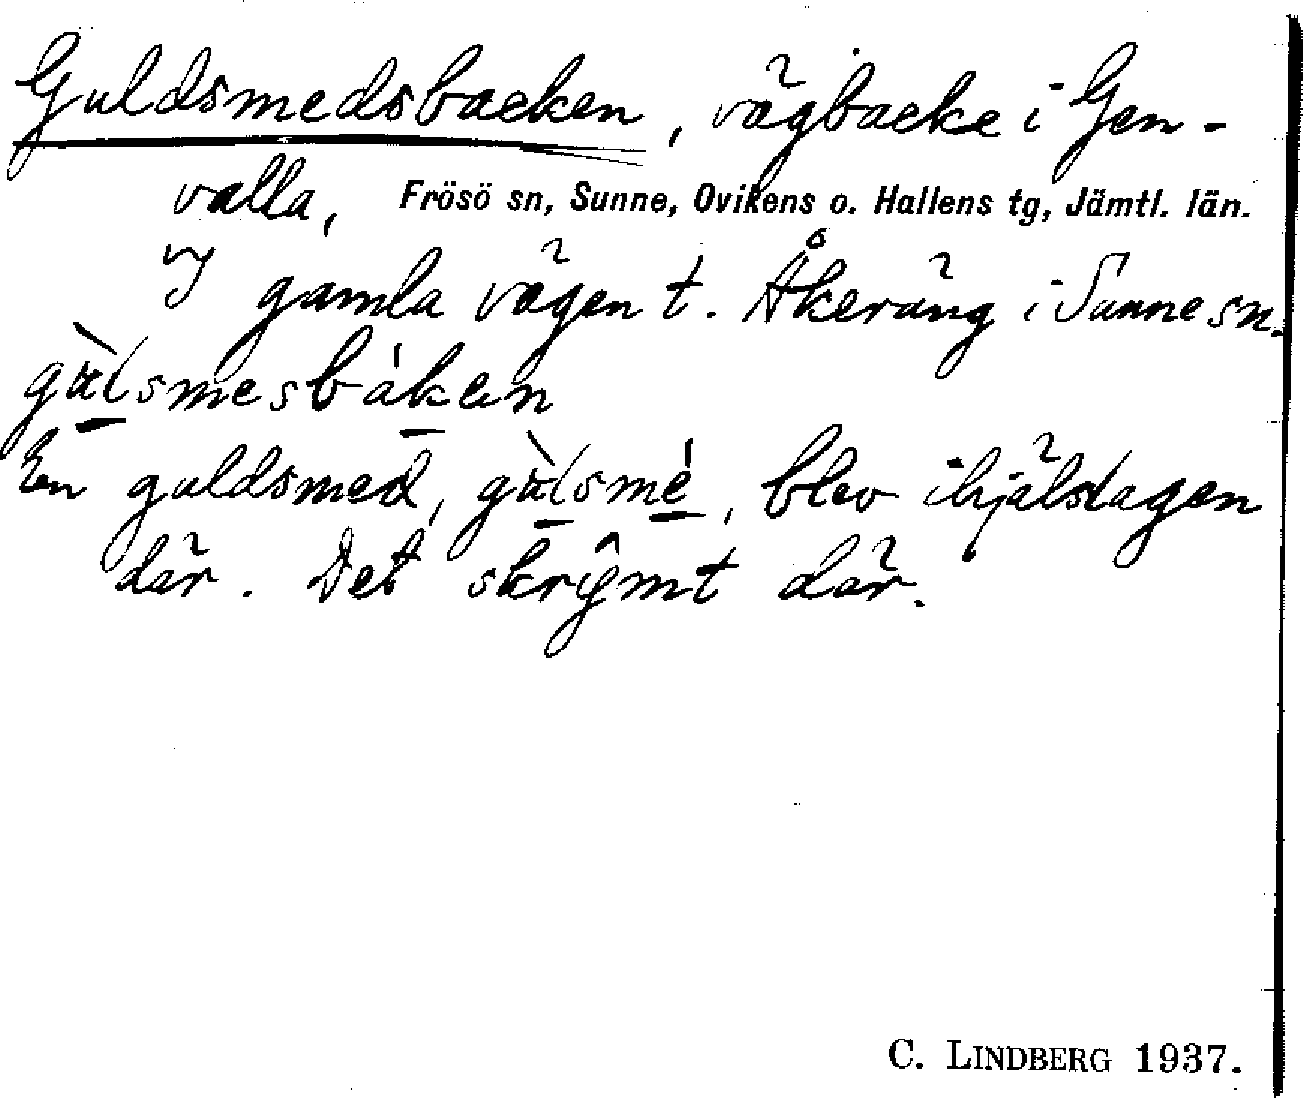 Guldsmedsbacken, vägbacke i Gen-
valla, Frösö sn, Sunne, Ovikens o. Hallens tg, Jämtl. län.
I gamla vägen t. Åkeräng i Sunne sn.
En guldsmed, blev ihjälslagen
där. Det skrymt där.
C. LINDBERG 1937.